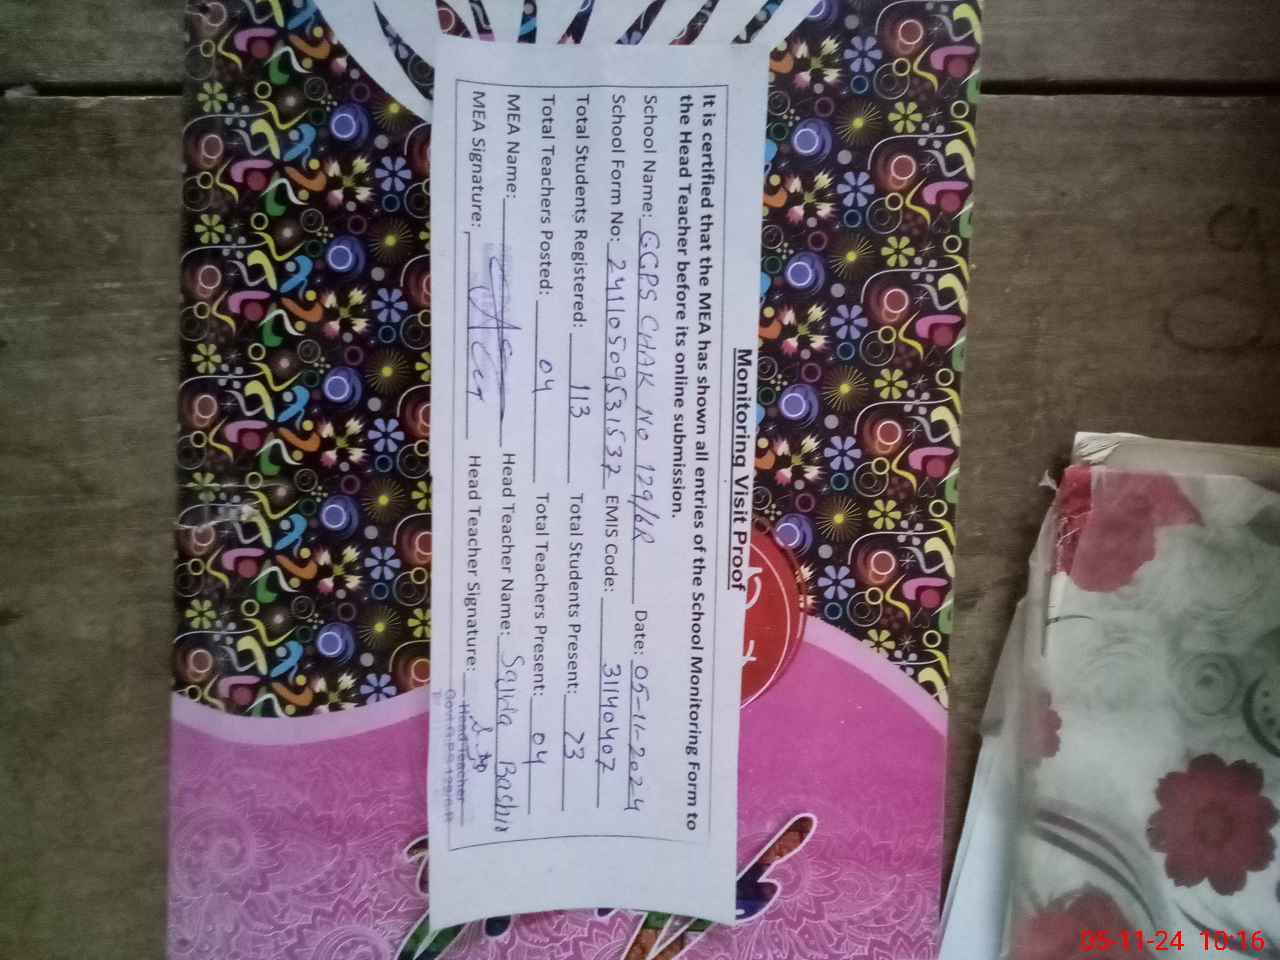 Monitoring Visit Proof
It is certified that the MEA has shown all entries of the School Monitoring Form to
the Head Teacher before its online submission.
School Name: GGPS CHAK NO 129/6R Date: 05-11-2024
School Form No: 24110509531537 EMIS Code: 31140407
Total Students Registered: 113 Total Students Present: 73
Total Teachers Posted: 04 Total Teachers Present: 04
MEA Name: Head Teacher Name: Sajida Bashir
MEA Signature: Head Teacher Signature:
Head Teacher
05-11-24 10:16